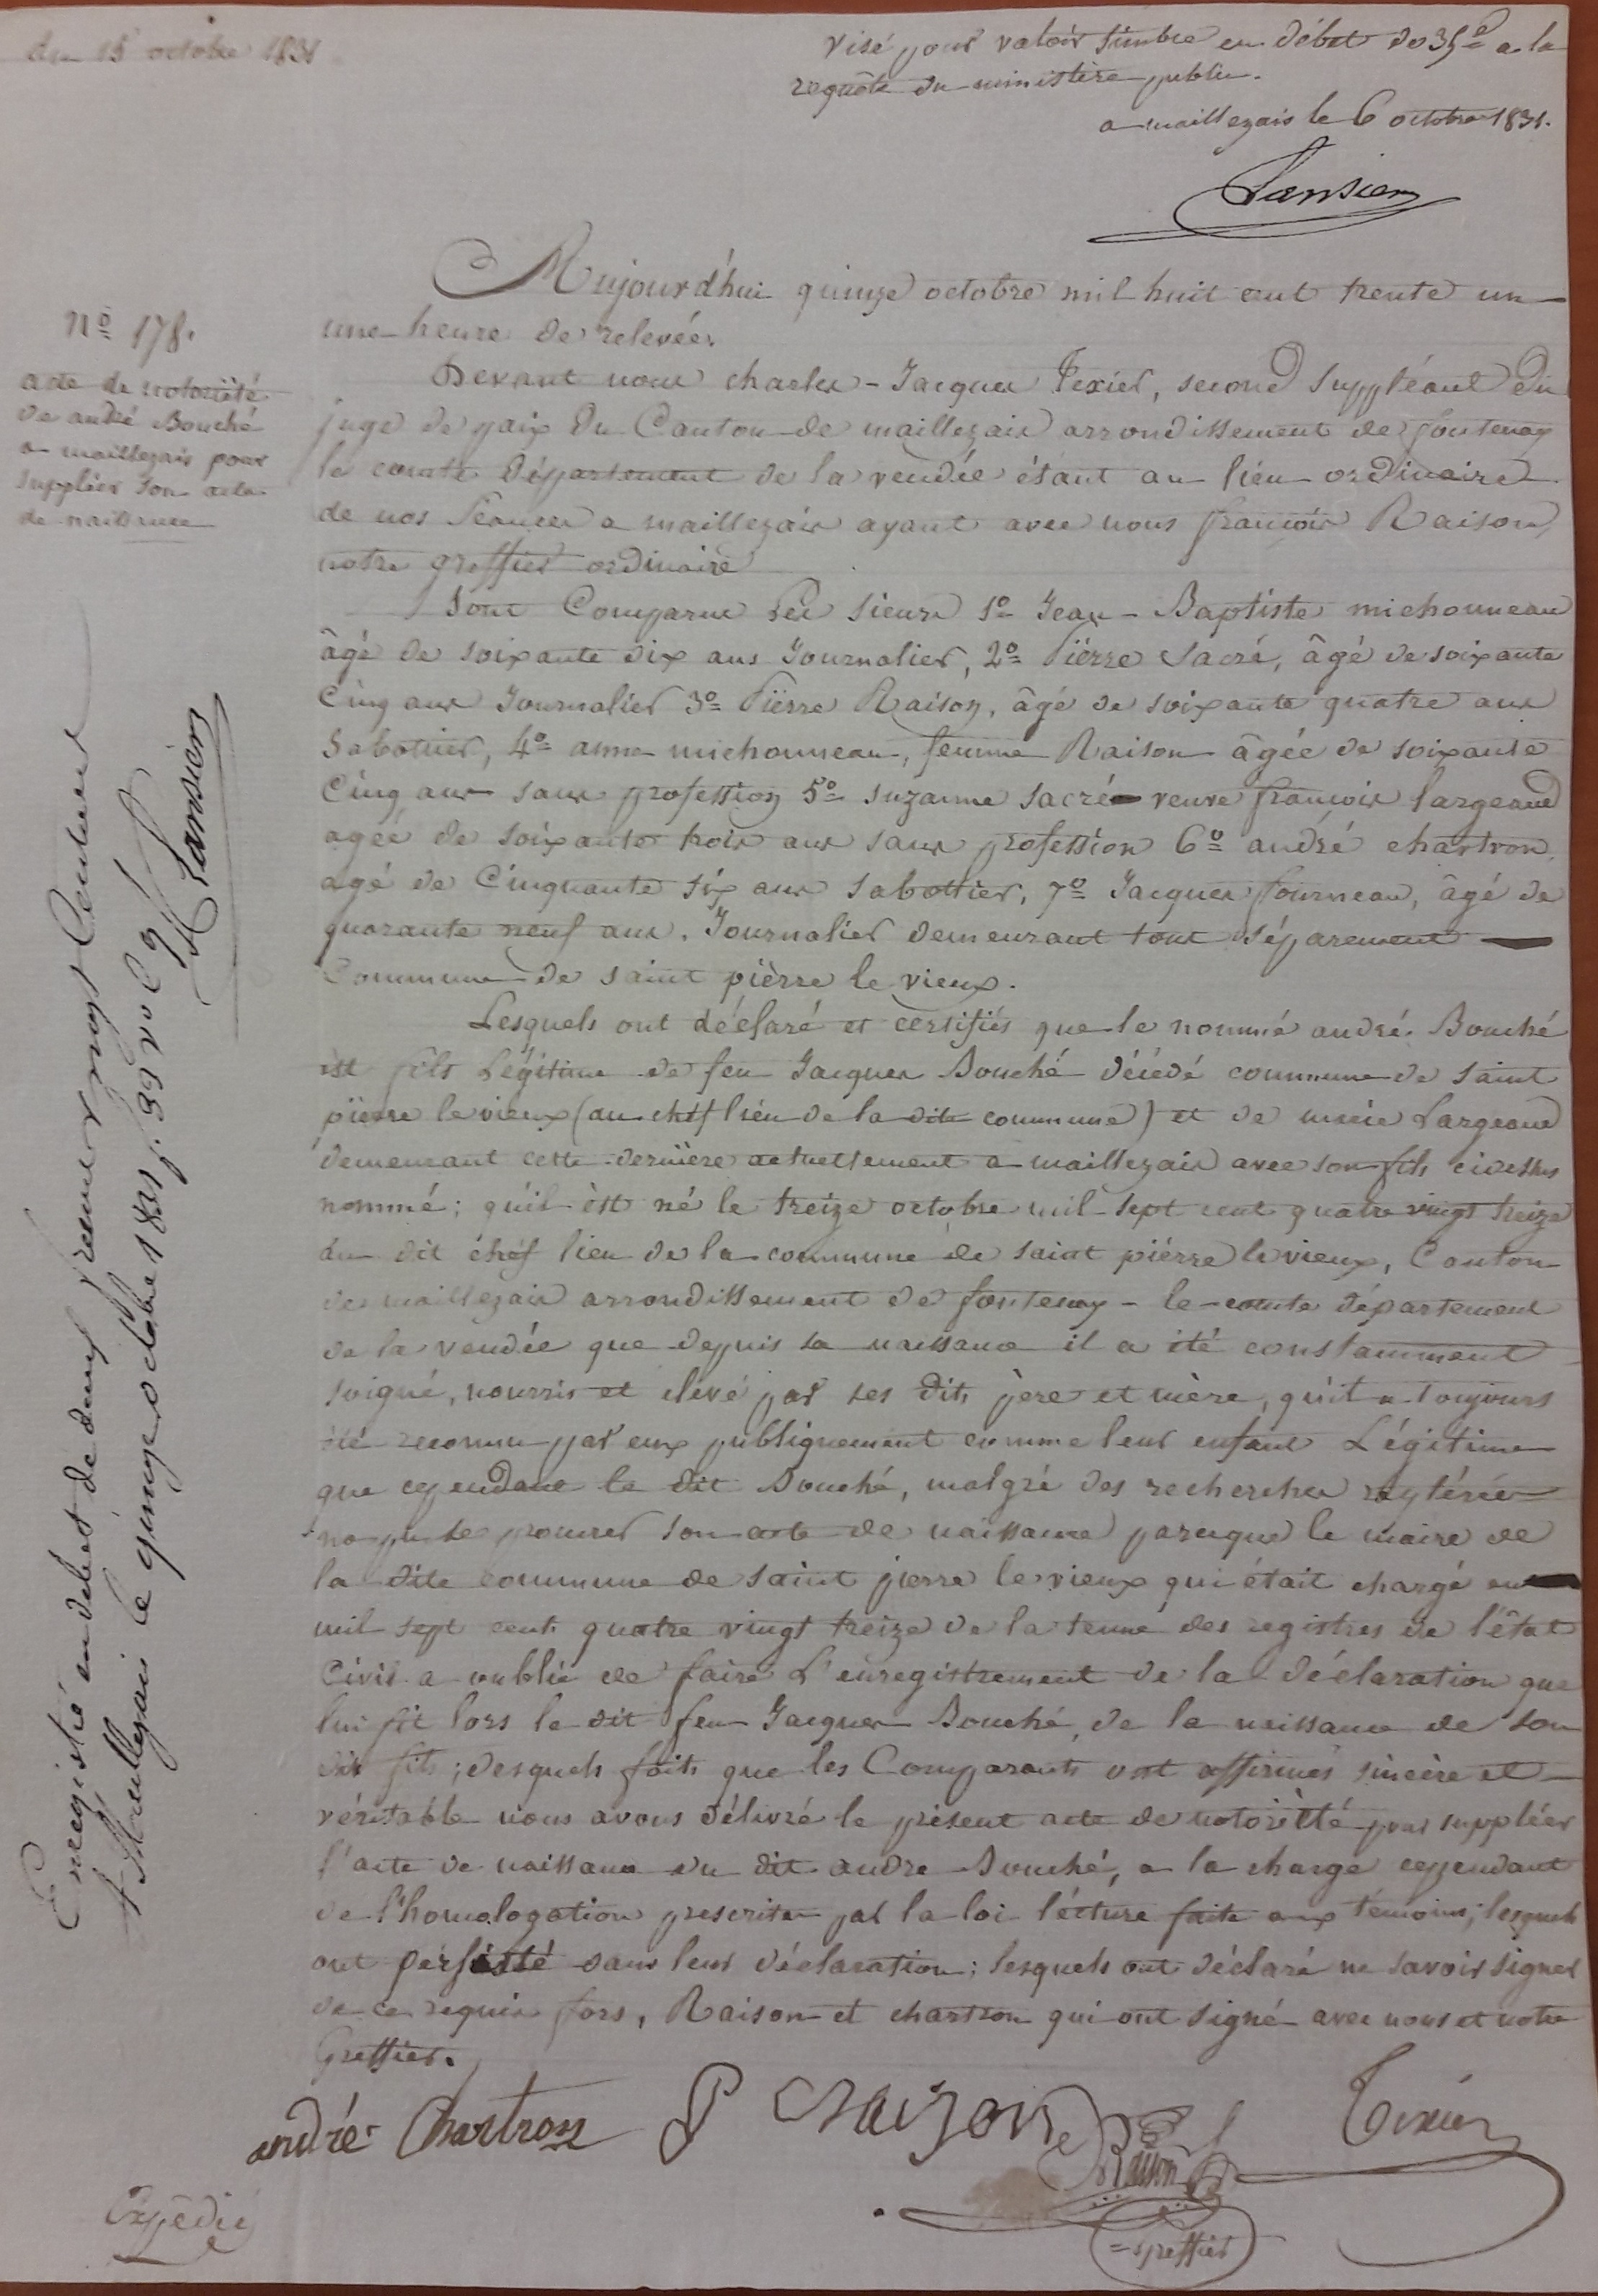 du 15 octobre 1831
visé pour valoir timbre en débet de 35c a la
requête du ministère public.
a maillezais le 6 octobre 1831.
Lansier
Aujourd'hui quinze octobre mil huit cent trente un
une heure de relevée.
N° 178.
acte de notoriété
de andré Bouché
a maillezais pour
suppléer son acte
de naissance
Devant nous charles-Jacques Texier, second suppléant du
juge de paix du Canton de maillezais arrondissement de fontenay
le comte département de la vendée étant au lieu ordinaire
de nos séances a maillezais ayant avec nous françois Raison
notre greffier ordinaire
Sont Comparus Les sieurs 1° Jean-Baptiste michonneau
âgé de soixante dix ans Journalier, 2° Pierre Sacré, âgé de soixante
Cinq ans Journalier 3° Pierre Raison, âgé de soixante quatre ans
Sabotier, 4° anne michonneau, femme Raison âgée de soixante
Cinq ans sans profession 5° suzanne sacré veuve françois largeaud
agée de soixante trois ans sans profession 6° andré chartron
agé de Cinquante six ans sabottier, 7° Jacques fourneau, âgé de
quarante neuf ans. Journalier demeurant tous séparement
Commune de saint pièrre le vieux.
Lesquels ont déclaré et certifiés que le nommé andré Bouché
est fils Légitime de feu Jacques Bouché décédé commune de saint
pièrre le vieux (au chéf lieu de la dite commune) et de marie Largeaud
demeurant cette dernière actuellement a maillezais avec son fils cidessus
nommé; qu'il est né le treize octobre mil sept cent quatre vingt treize
au dit chéf lieu de la commune de saint pièrre le vieux, Canton
de maillezais arrondissement de fontenay-le-comte département
de la vendée que depuis sa naissance il a été constamment
soigné, nourris et elevé par ses dits père et mère, qu'il a toujours
été reconnu par eux publiquement comme leur enfant Légitime
que cependant le dit Bouché, malgré des recherches reytérée
n'a pu se procurer son acte de naissance parceque le maire de
la dite commune de saint pierre le vieux qui était chargé en
mil sept cent quatre vingt treize de la tenue des registres de l'état
Civil a oublié de faire L'enregistrement de la déclaration que
lui fit lors le dit feu Jacques Bouché, de la naissance de son
dit fils; desquels faits que les Comparants ont affirmés sincère et
véritable nous avons délivré le présent acte de notoriété pour suppléer
l'acte de naissance du dit andré Bouché, a la charge cependant
de l'homologation prescrite par la loi lécture faite aux témoins; lesquels
ont pérsisté dans leur déclaration; lesquels ont déclaré ne savoir signer
de ce requis fors, Raison et chartron qui ont signé avec nous et notre
Greffier.
andré Chartron P Raizon Texier
Raison
greffier
Expédié
Enregistré en debet de deux francs vingt Centimes
A Maillezais le quinze octobre 1831 f. 39 vo C 9
Lansier